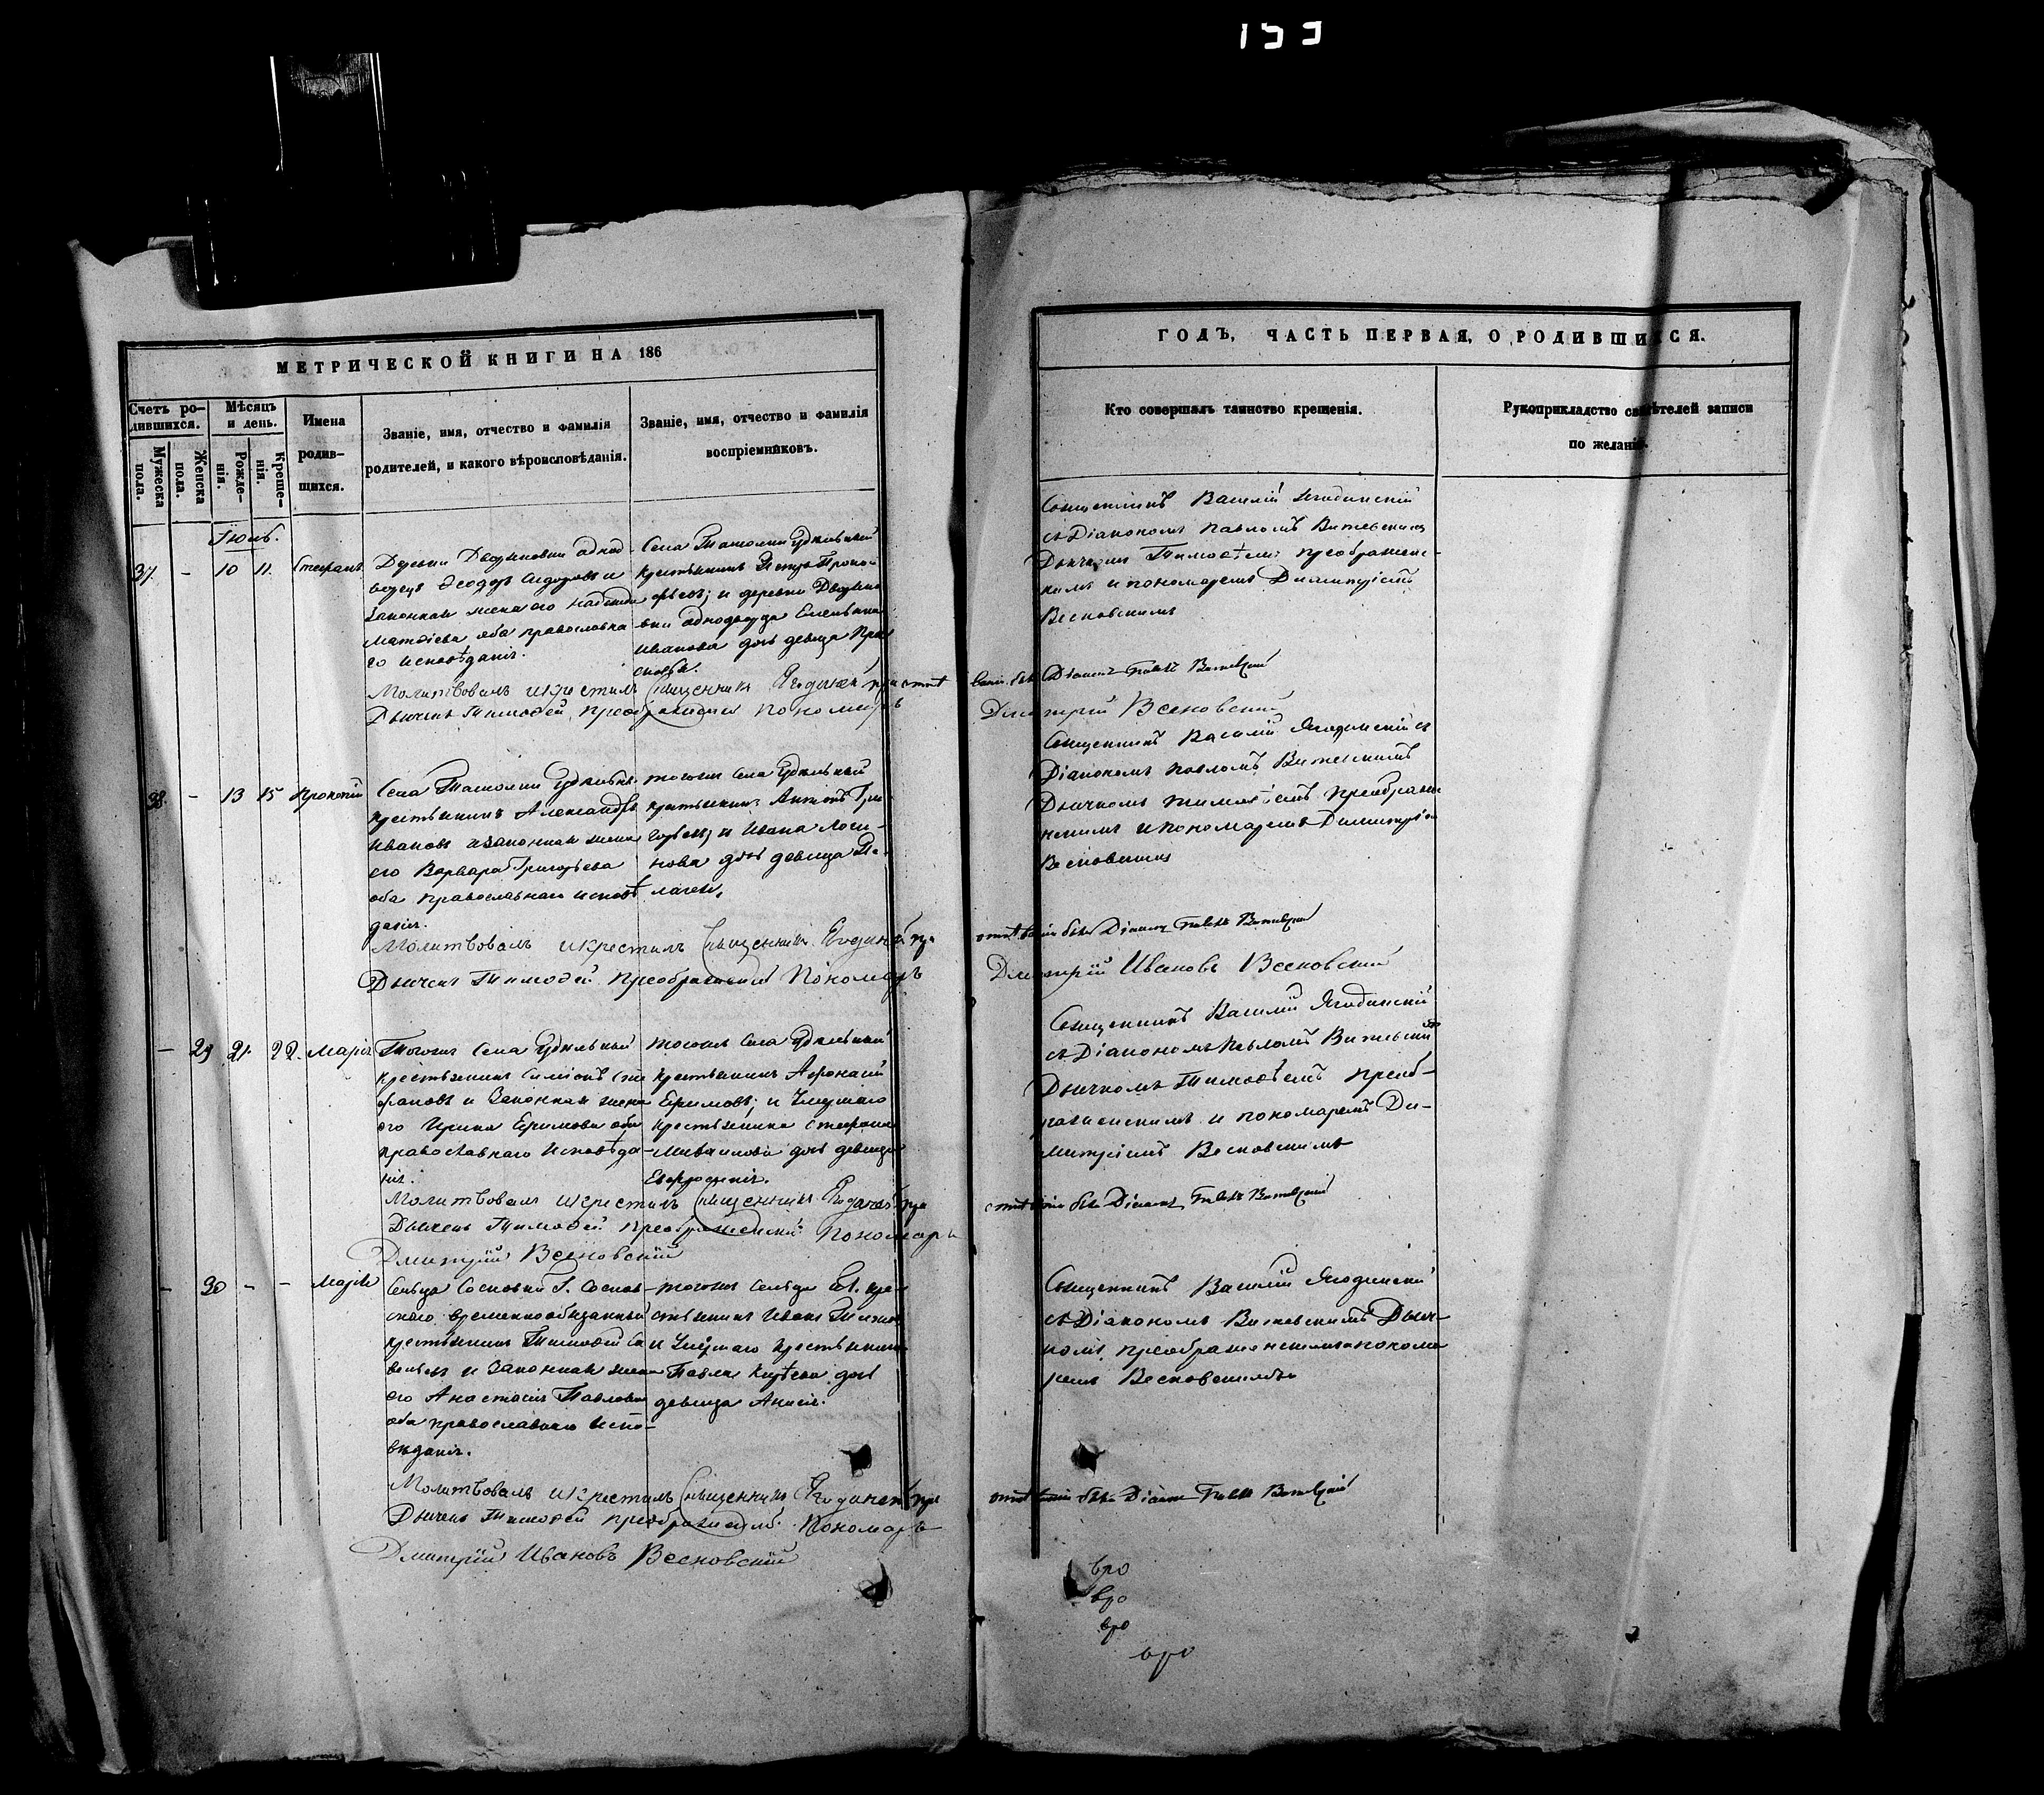 МЕТРИЧЕСКОЙ КНИГИ НА 186
Счетъ ро-
дившихся.
Мужеска
пола.
Женска
пола.
Мѣсяцъ
и день.
Рожде-
нія.
Креще-
нія.
Имена
родив-
шихся.
Званіе, имя, отчество и фамилія
родителей, и какого вѣроисповѣданія.
Званіе, имя, отчество и фамилія
воспріемниковъ.
37 - 10 11. Стефанъ
Ѳеодоръ Сидоровъ и
законная жена его
Матѳіева оба православна
го исповѣданія.
Села удѣльный
крестьянинъ Петръ Проко-
фьевъ; и деревни
однодворца
Иванова дочь девица
Молитвовалъ и крестилъ Священникъ
Дьячекъ Тимофей Преображенскій Пономарь
38. - 13 15 Прокопій
Села удѣльный
крестьянинъ Александръ
Ивановъ и законная жена
его Варвара Григорьева
оба православнаго исповѣ
данія.
тогоже села удѣльный
крестьянинъ Антонъ Гри-
горьевъ; и Ивана Логи-
нова дочь девица Пе-
лагея.
Молитвовалъ и крестилъ Священникъ
Дьячекъ Тимофей Преображенскій Пономарь
- 29 21. 22. Марія
Тогоже села удѣльный
крестьянинъ Симеонъ Сте
фановъ и законная жена
его Ирина Ефимова оба
православнаго исповѣда-
нія.
тогоже села удѣльный
крестьянинъ Афонасій
Ефимовъ; и умершаго
крестьянина Стефана
дочь девица
Евфросинія.
Молитвовалъ и крестилъ Священникъ
Дьячекъ Тимофей Преображенскій Пономарь
Дмитрій Весновскій
- 30 - - Марія
Сельца Сосновки Г. Соснов-
скаго временнообязанный
крестьянинъ Тимофей Са
вельевъ и законная жена
его Анастасія Павлова
оба православнаго испо-
вѣданія.
тогоже сельца кре-
стьянинъ Иванъ
и умершаго крестьянина
Павла дочь
девица Анисія.
Молитвовалъ и крестилъ Священникъ
Дьячекъ Тимофей Преображенскій Пономарь
Дмитрій Ивановъ Весновскій
ГОДЪ, ЧАСТЬ ПЕРВАЯ, О РОДИВШИХСЯ.
Кто совершалъ таинство крещенія.
Рукоприкладство свидѣтелей записи
по желанію.
Священникъ Василій Ягодинскій
съ Діакономъ Павломъ Витевскимъ
Дьячкомъ Тимофѣемъ Преображенс-
кимъ и пономаремъ Димитріемъ
Весновскимъ
Діаконъ Павелъ Витевскій
Дмитрій Весновскій
Священникъ Василій Ягодинскій съ
Діакономъ Павломъ Витевскимъ
Дьячкомъ Тимофѣемъ Преображе
нскимъ и пономаремъ Димитріем
Весновскимъ
Діаконъ Павелъ Витевскій
Дмитрій Ивановъ Весновскій
Священникъ Василій Ягодинскій
съ Діакономъ Павломъ Витевскимъ
Дьячкомъ Тимофѣемъ Преоб-
раженскимъ и пономаремъ Ди-
митріемъ Весновскимъ
Діаконъ Павелъ Витевскій
Священникъ Василій Ягодинскій
съ Діакономъ Витевскимъ Дьяч-
комъ Преображенскимъ и понома
ремъ Весновскимъ
Діаконъ Павелъ Витевскій